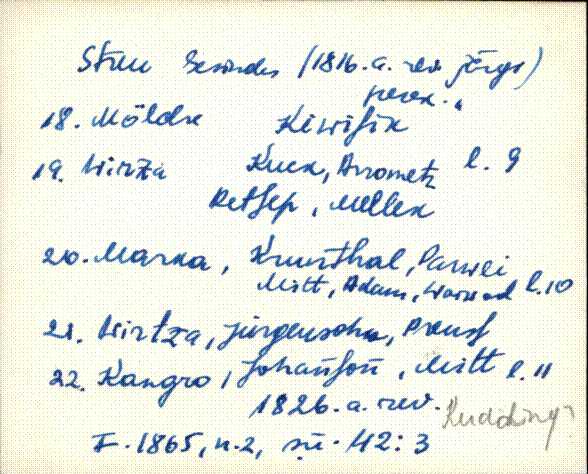 Struu Gesindes (1816.a. rev järgi)
perek.
18. Möldre Kiwisik
19. Wirza Kuck, Arrometz l. 9
Retsep, Mellex
20. Marna, Krunthal, Parwei
Mitt, Adam, Warwad l.10
21. Wirtza, Jürgensohn, Preuss
22. Kangro, Johanson, Mitt l. 11
1826.a. rev.
F. 1865, n.2, sü. 42:3